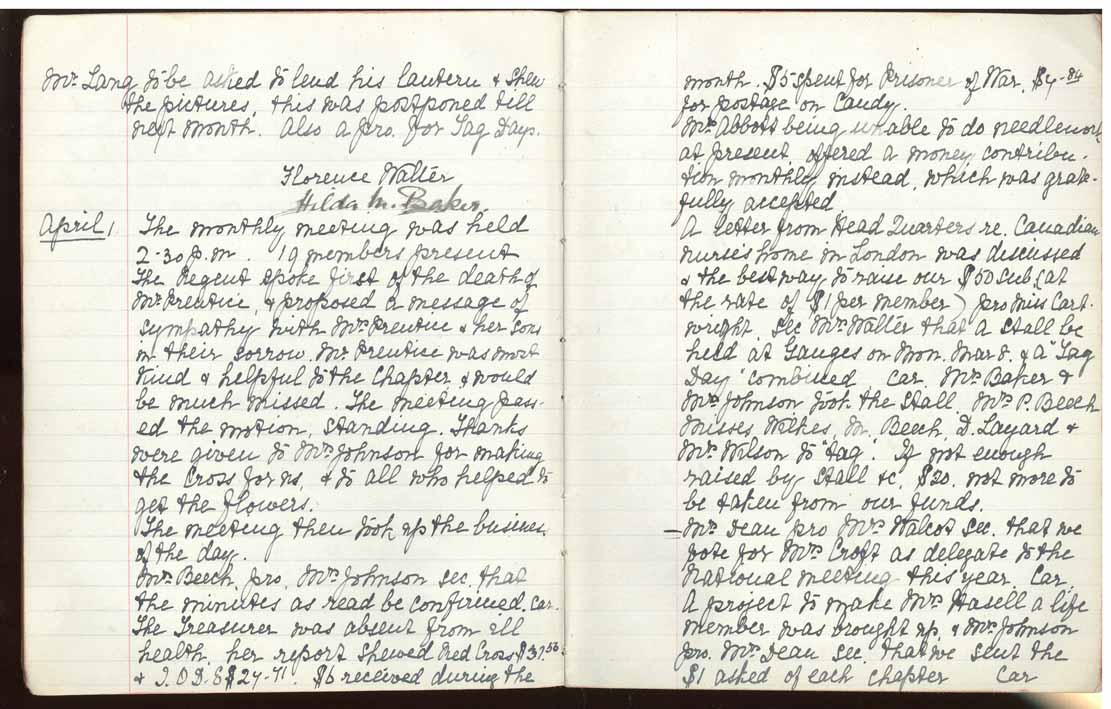 Mr. Lang to be asked to lend his lantern & shew
the pictures, this was postponed till
next month. Also a pro. for Tag Day.
Florence Walter
Hilda M. Baker.
April 1
The monthly meeting was held
2-30 p.m. 19 members present
The Regent spoke first of the death of
Mr Prentice, & proposed a message of
sympathy with Mrs Prentice & her sons
in their sorrow. Mr Prentice was most
kind & helpful to the Chapter & would
be much missed. The meeting pass-
ed the motion, standing. Thanks
were given to Mrs Johnson for making
the Cross for us, & to all who helped to
get the flowers.
The meeting then took up the business
of the day.
Mrs Beech pro. Mrs Johnson sec. that
the minutes as read be confirmed. Car.
The Treasurer was absent from ill
health, her report shewed Red Cross $37.56
& I.O.D.E $27-71. $6 received during the
month. $5 spent for Prisoner of War. $4-84
for postage on Candy.
Mrs Abbott being unable to do needlework
at present, offered a money contribu-
tion monthly instead, which was grate-
fully accepted
A letter from Head Quarters re. Canadian
nurses home in London was discussed
& the best way to raise our $50 sub (at
the rate of $1 per member) pro Miss Cart-
wright, sec Mrs Walter that a stall be
held at Ganges on Mon. Mar 8. & a "Tag
Day" combined. Car. Mrs Baker &
Mrs Johnson took the stall. Mrs P. Beech
Misses Wilkes, M. Beech, D. Layard &
Mrs Wilson to "tag". If not enough
raised by stall &c. $20. not more to
be taken from our funds.
Mrs Dean pro Mrs Walcot sec. that we
vote for Mrs Croft as delegate to the
National meeting this year. Car.
A project to make Mrs Hasell a life
member was brought up, & Mrs Johnson
pro. Mrs Dean sec. that we sent the
$1 asked of each chapter Car